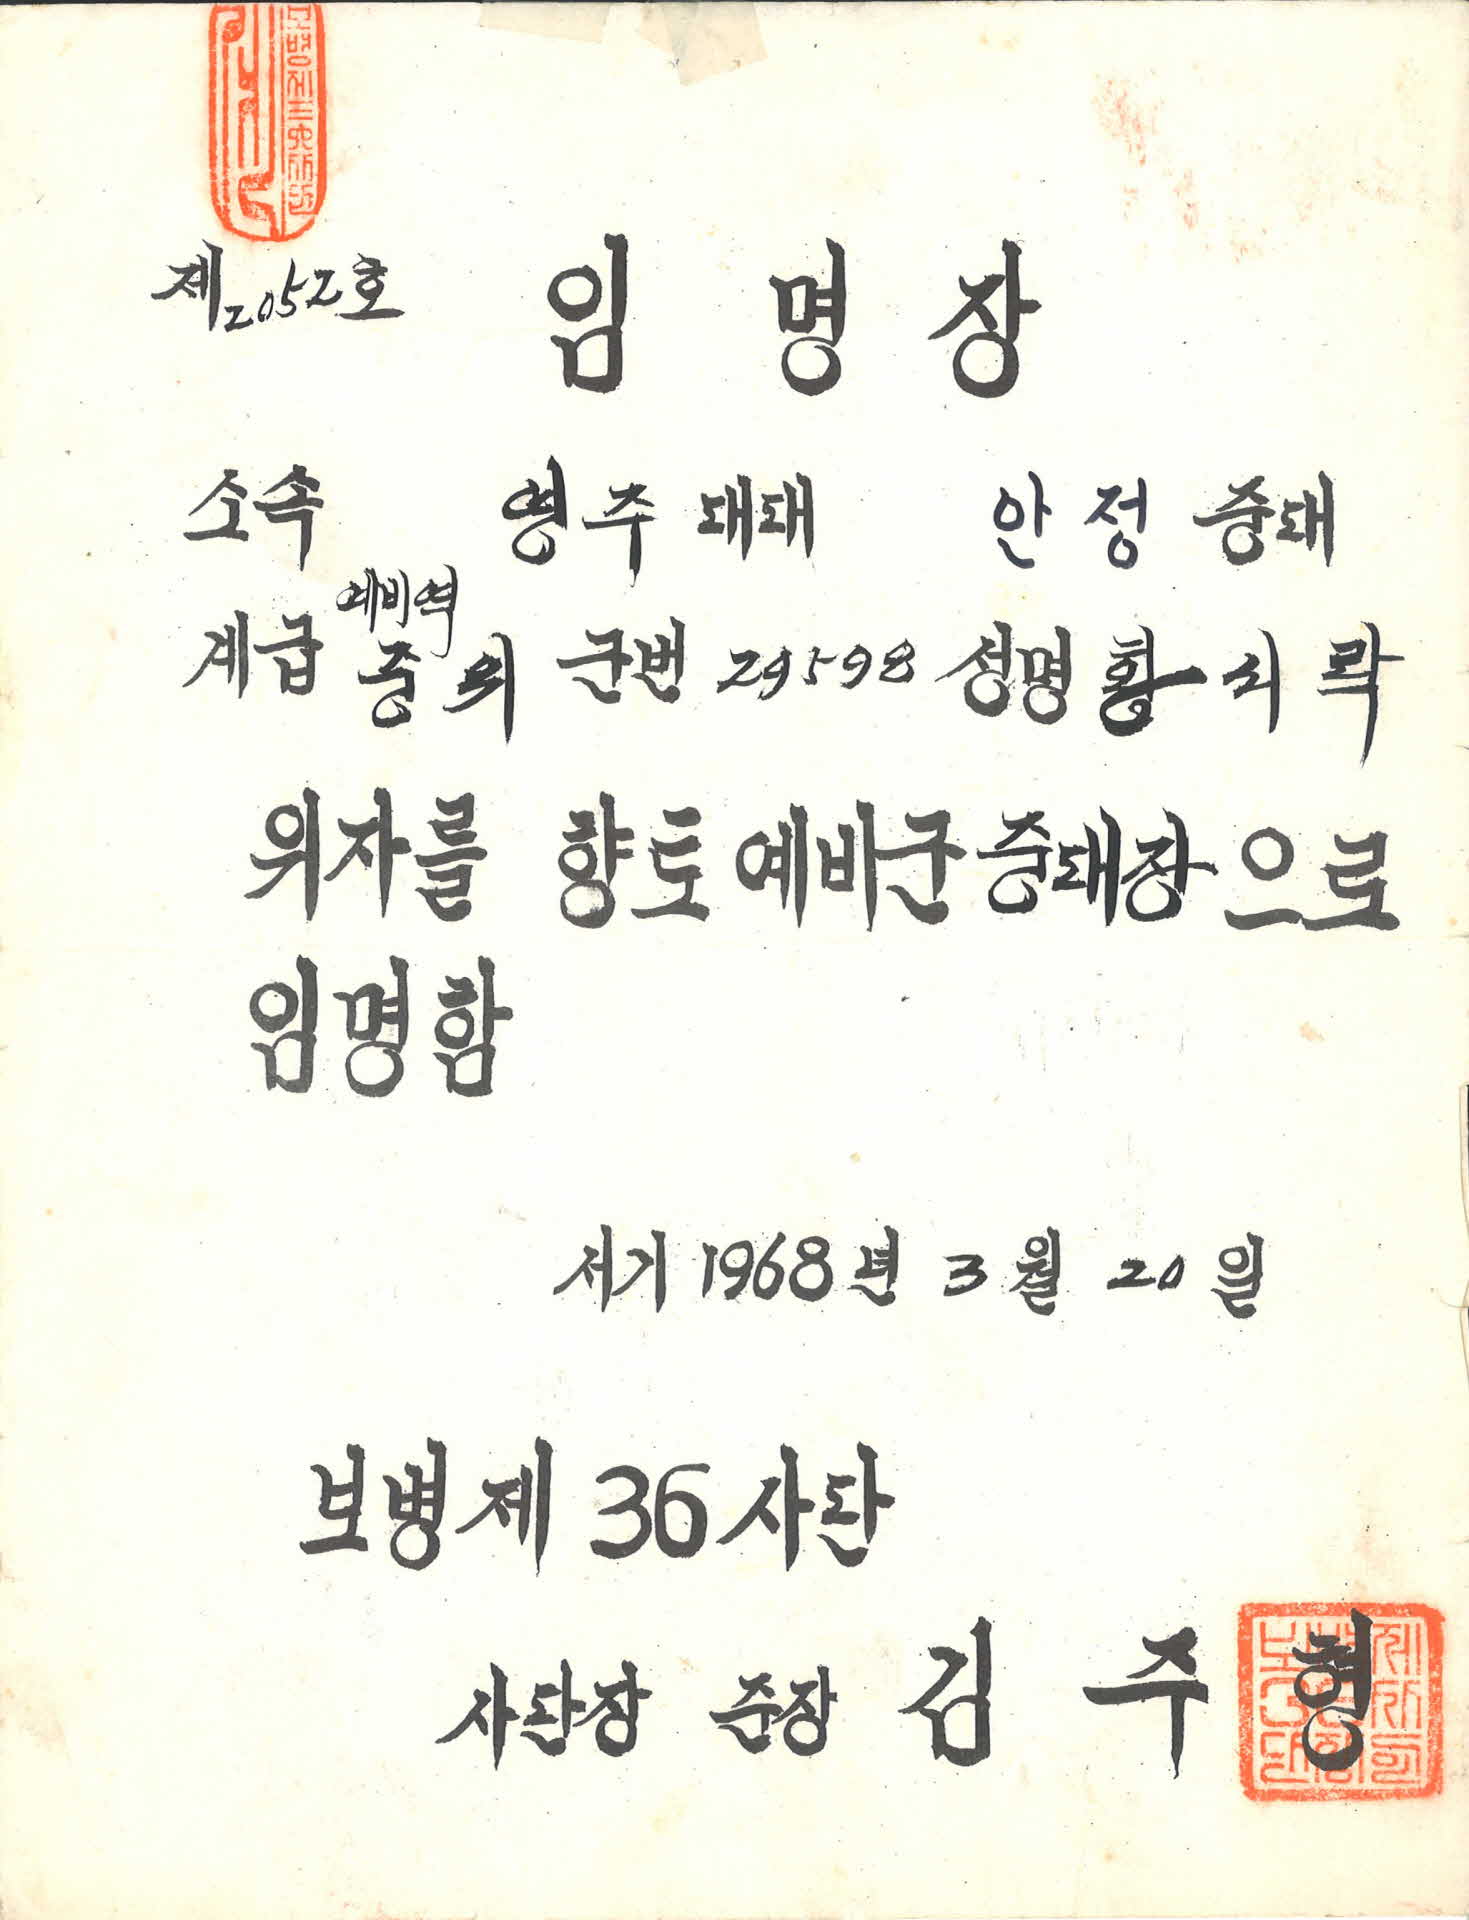 제2052호 임명장
소속 영주대대 안정중대
예비역
계급 중위 군번 29598 성명 황시락
위자를 향토예비군중대장으로
임명함
서기 1968년 3월 20일
보병제36사단
사단장 준장 김주형